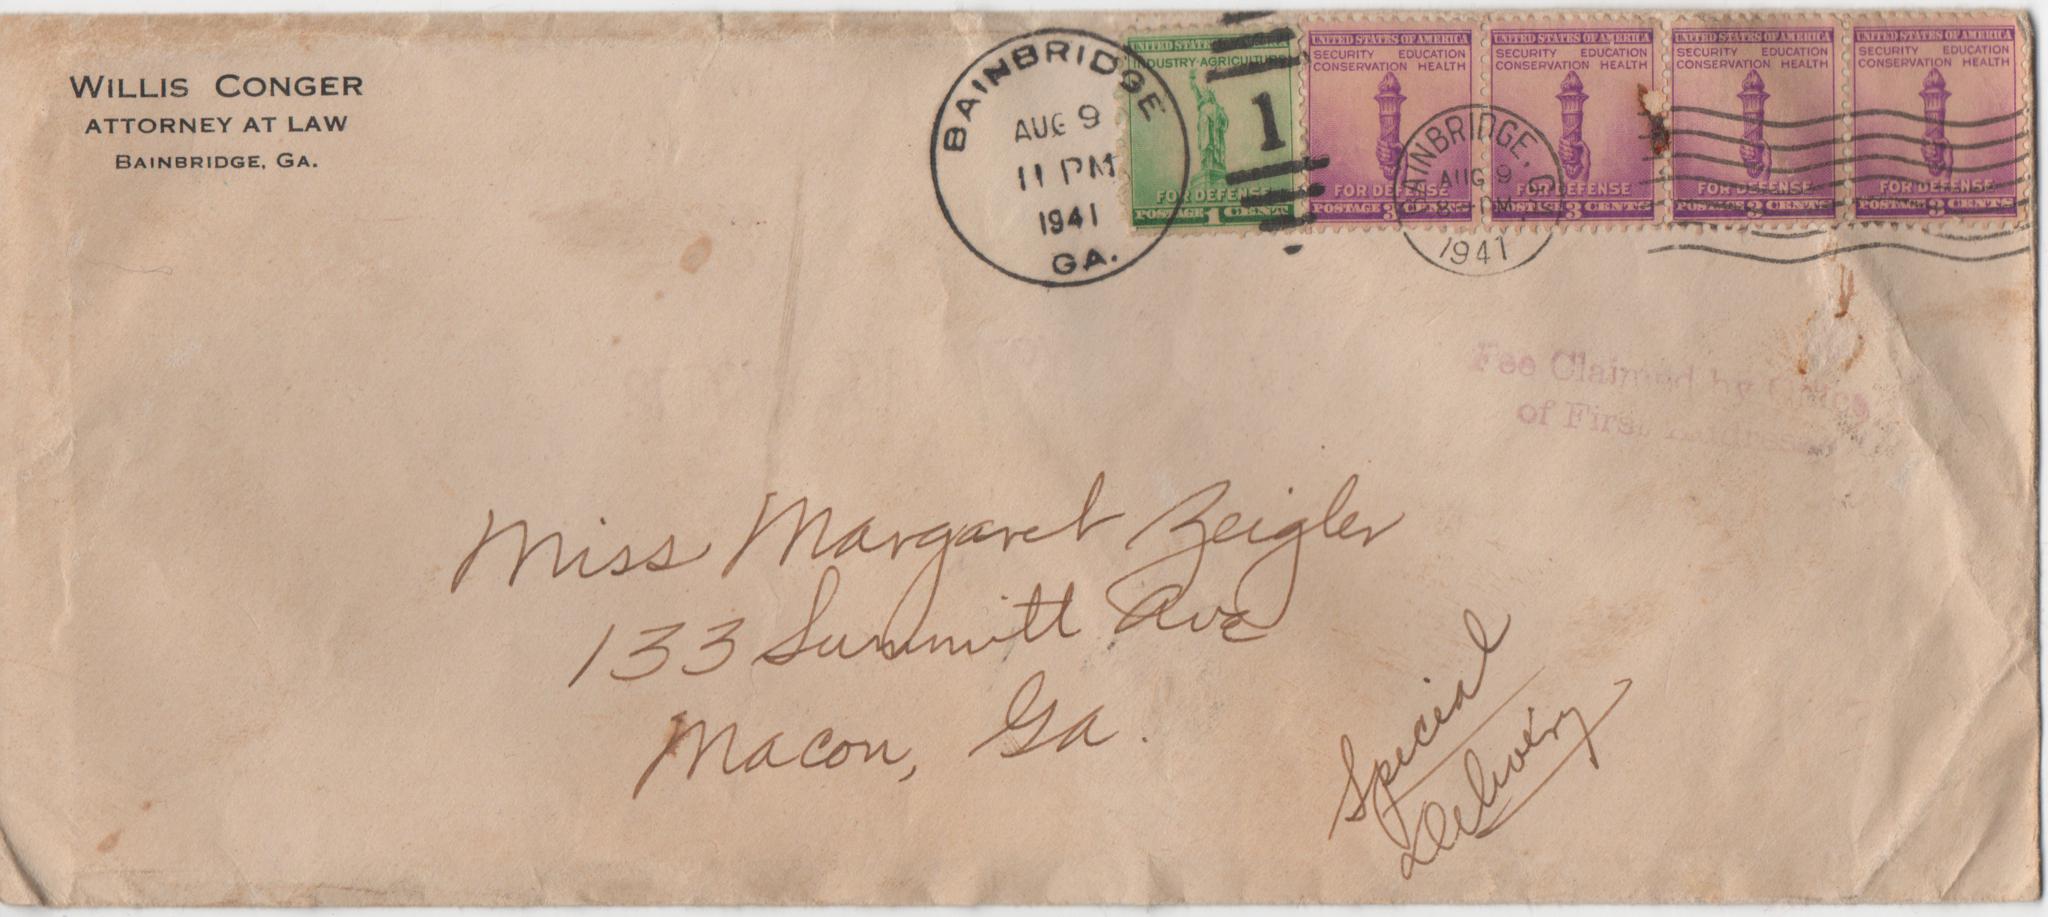 WILLIS CONGER
ATTORNEY AT LAW
BAINBRIDGE, GA.
BAINBRIDGE
AUG 9
11 PM
1941
GA.
UNITED STATES OF AMERICA
INDUSTRY·AGRICULTURE
1
FOR DEFENSE
POSTAGE 1 CENT
UNITED STATES OF AMERICA
SECURITY EDUCATION
CONSERVATION HEALTH
FOR DEFENSE
POSTAGE 3 CENTS
UNITED STATES OF AMERICA
SECURITY EDUCATION
CONSERVATION HEALTH
FOR DEFENSE
POSTAGE 3 CENTS
UNITED STATES OF AMERICA
SECURITY EDUCATION
CONSERVATION HEALTH
FOR DEFENSE
POSTAGE 3 CENTS
UNITED STATES OF AMERICA
SECURITY EDUCATION
CONSERVATION HEALTH
FOR DEFENSE
POSTAGE 3 CENTS
BAINBRIDGE, GA.
AUG 9
8 PM
1941
Fee Claimed by Office
of First Address
Miss Margaret Zeigler
133 Summitt Ave
Macon, Ga.
Special
Delivery